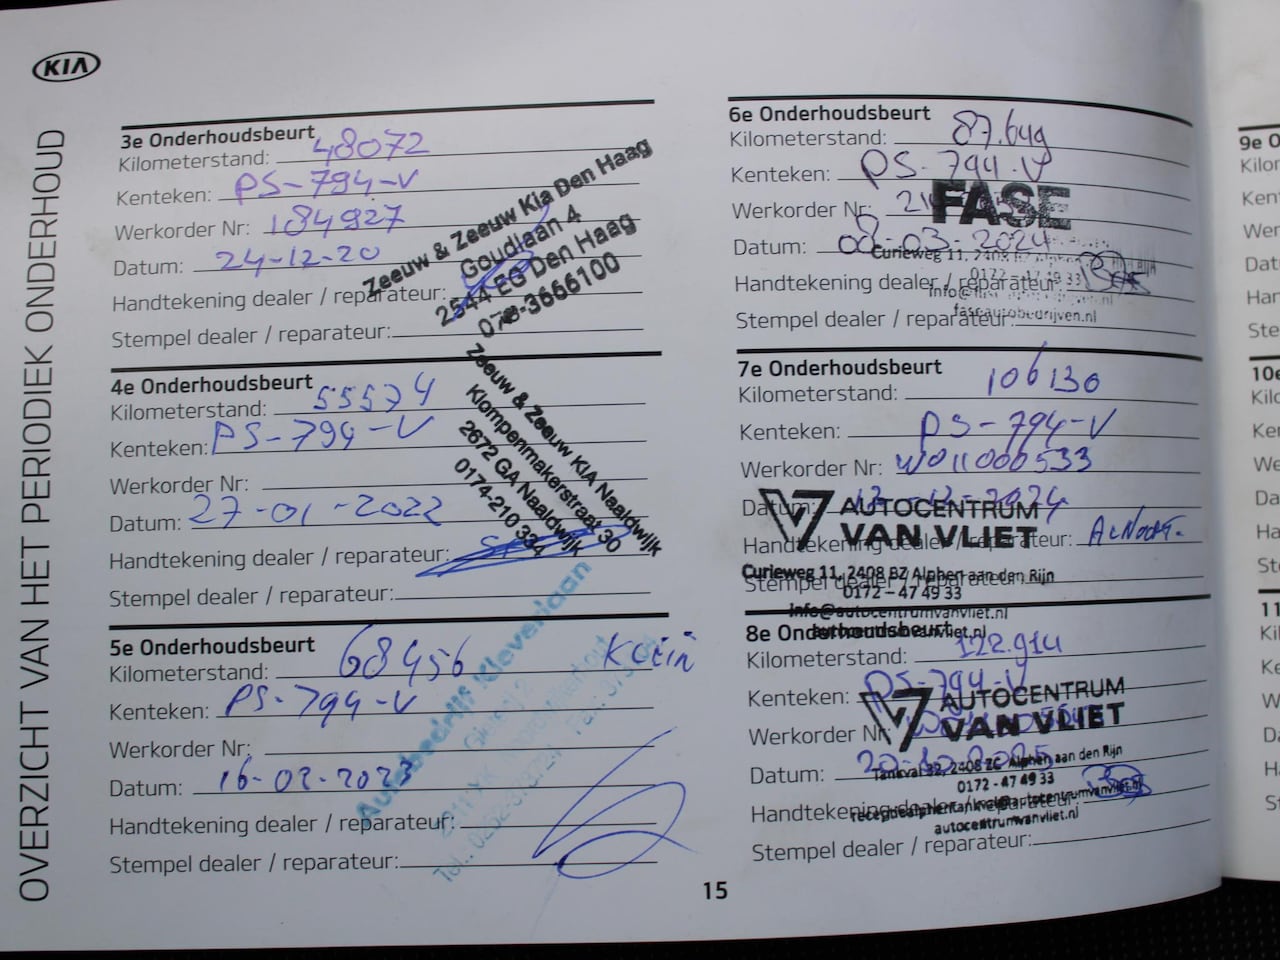 KIA
OVERZICHT VAN HET PERIODIEK ONDERHOUD
3e Onderhoudsbeurt
Kilometerstand: 48072
Kenteken: PS-794-V
Werkorder Nr: 184927
Datum: 24-12-20
Handtekening dealer / reparateur:
Stempel dealer / reparateur:
Zeeuw & Zeeuw Kia Den Haag
Goudlaan 4
2544 EG Den Haag
070-3666100
4e Onderhoudsbeurt
Kilometerstand: 55574
Kenteken: PS-794-V
Werkorder Nr:
Datum: 27-01-2022
Handtekening dealer / reparateur:
Stempel dealer / reparateur:
Zeeuw & Zeeuw KIA Naaldwijk
Klompenmakerstraat 30
2672 GA Naaldwijk
0174-210 334
5e Onderhoudsbeurt
Kilometerstand: 68456
Kenteken: PS-794-V
Werkorder Nr:
Datum: 16-02-2023
Handtekening dealer / reparateur:
Stempel dealer / reparateur:
Autobedrijf Kleverlaan
6e Onderhoudsbeurt
Kilometerstand: 87.649
Kenteken: PS-794-V
Werkorder Nr:
Datum: 08-03-2024
Handtekening dealer / reparateur:
Stempel dealer / reparateur:
FASE
Curieweg 11, 2408
0172-47 49 33
faseautobedrijven.nl
7e Onderhoudsbeurt
Kilometerstand: 106130
Kenteken: PS-794-V
Werkorder Nr: WO11000533
Datum: 2024
Handtekening dealer / reparateur:
Stempel dealer / reparateur:
AUTOCENTRUM
VAN VLIET
Curieweg 11, 2408 BZ Alphen aan den Rijn
0172-47 49 33
info@autocentrumvanvliet.nl
autocentrumvanvliet.nl
8e Onderhoudsbeurt
Kilometerstand: 122.914
Kenteken: PS-794-V
Werkorder Nr:
Datum: 2025
Handtekening dealer / reparateur:
Stempel dealer / reparateur:
AUTOCENTRUM
VAN VLIET
Tankval 32, 2408 ZC Alphen aan den Rijn
0172-47 49 33
autocentrumvanvliet.nl
15
9e
10e
11